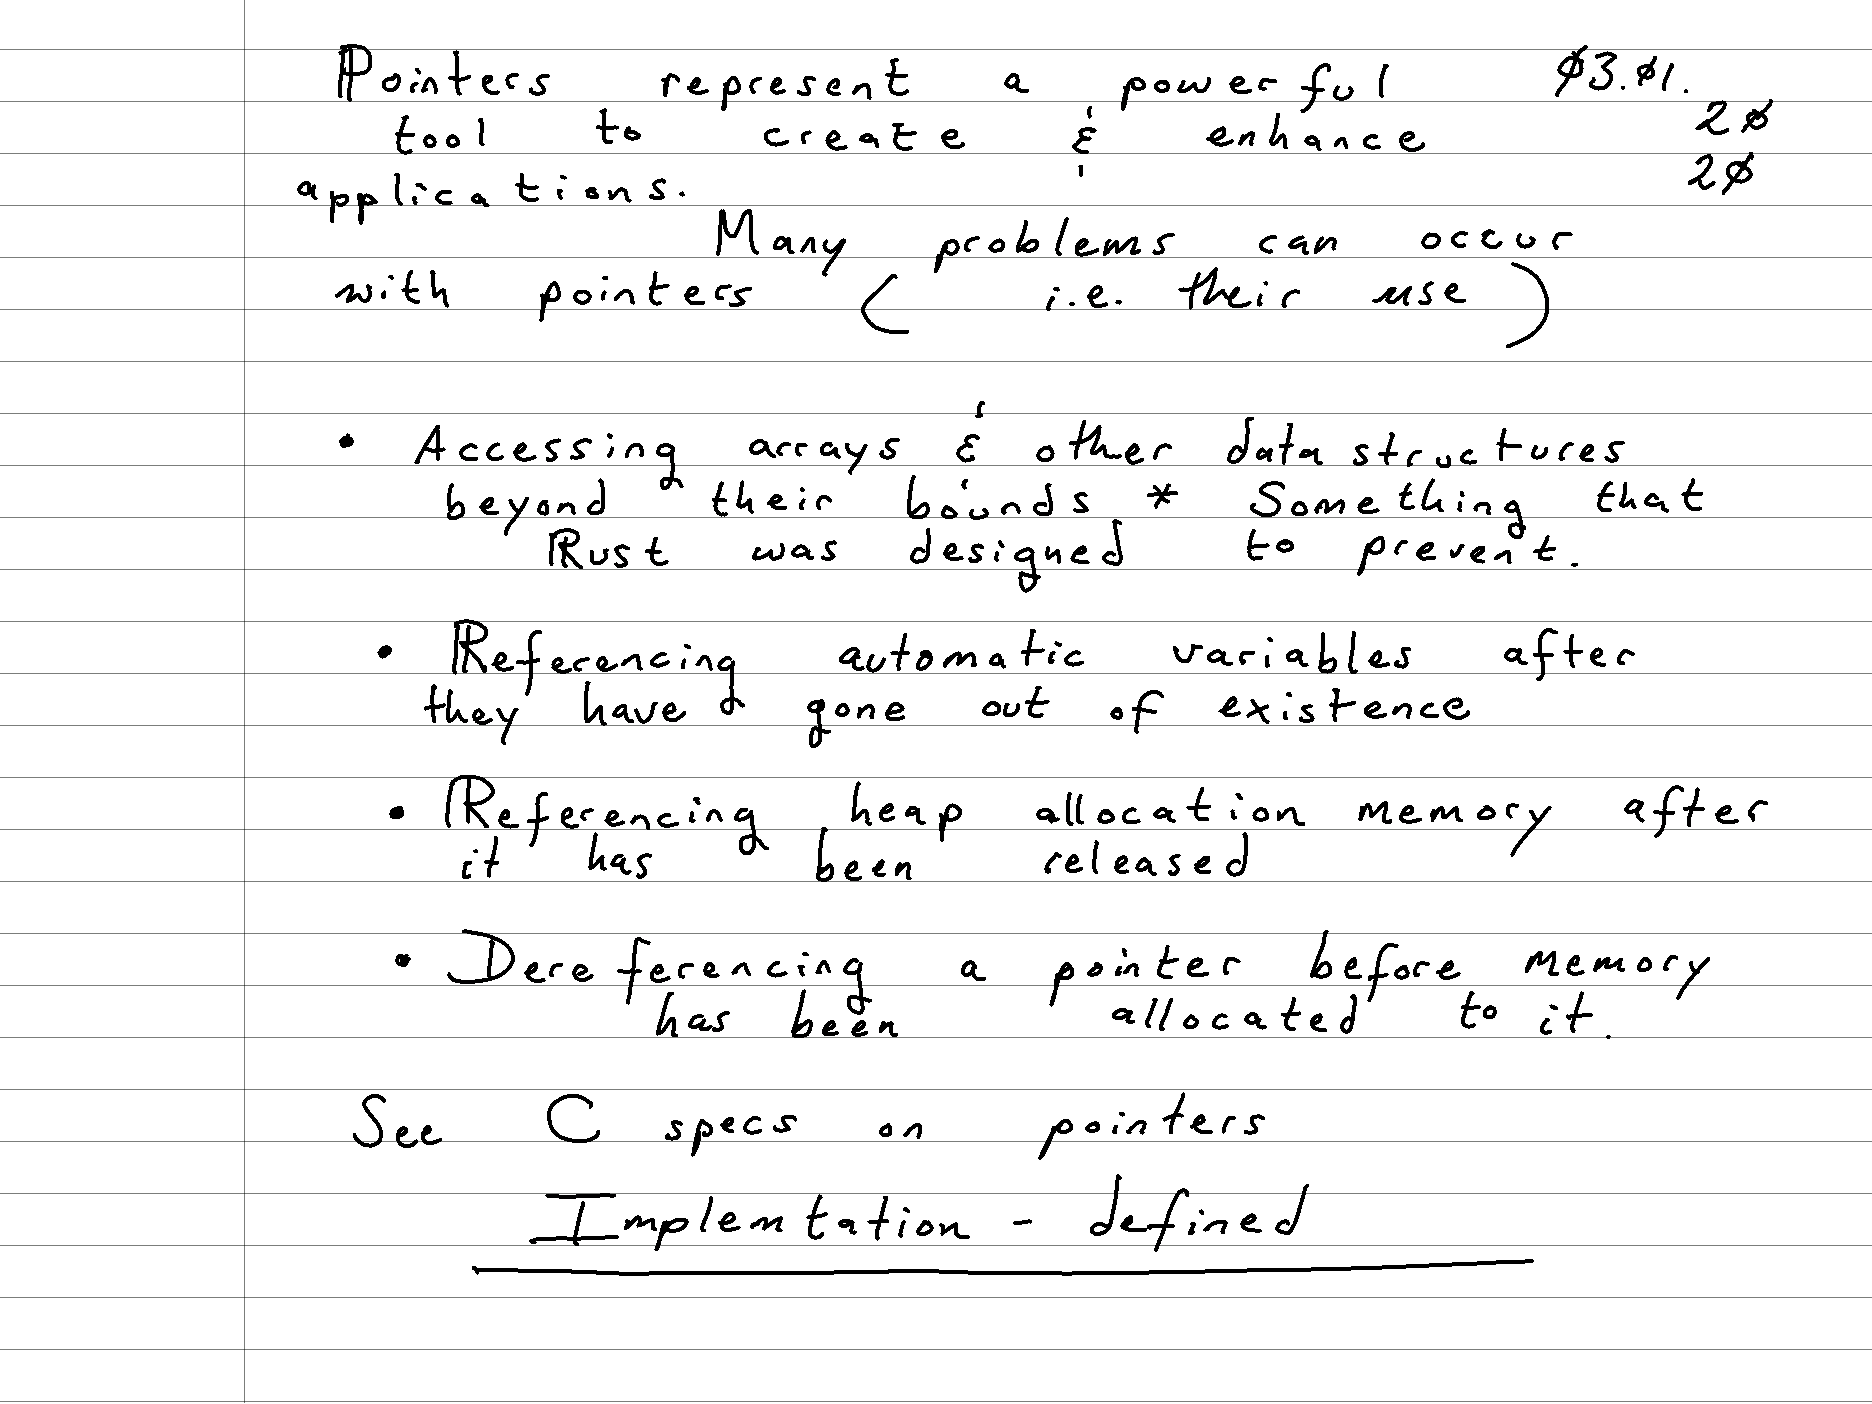 Pointers represent a powerful Ø3.Ø1.
tool to create & enhance 2Ø
applications. 2Ø
Many problems can occur
with pointers ( i.e. their use )
• Accessing arrays & other data structures
beyond their bounds * Something that
Rust was designed to prevent.
• Referencing automatic variables after
they have gone out of existence
• Referencing heap allocation memory after
it has been released
• Dereferencing a pointer before memory
has been allocated to it.
See C specs on pointers
Implemtation - defined